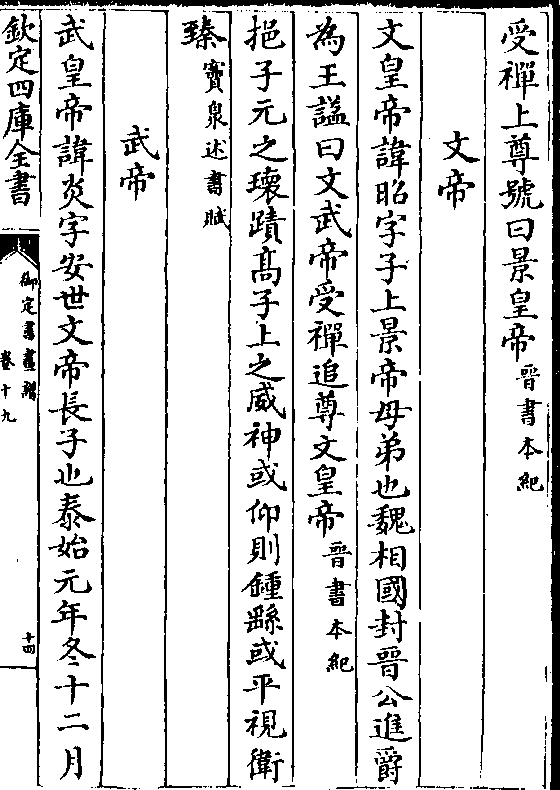 受禪上尊號曰景皇帝晉書本紀
文帝
文皇帝諱昭字子上景帝母弟也魏相國封晉公進爵
為王諡曰文武帝受禪追尊文皇帝晉書本紀
挹子元之瓌蹟髙子上之威神或仰則鍾繇或平視衛
臻竇泉述書賦
武帝
武皇帝諱炎字安世文帝長子也泰始元年冬十二月
欽定四庫全書
御定書畫譜
卷十九
十四